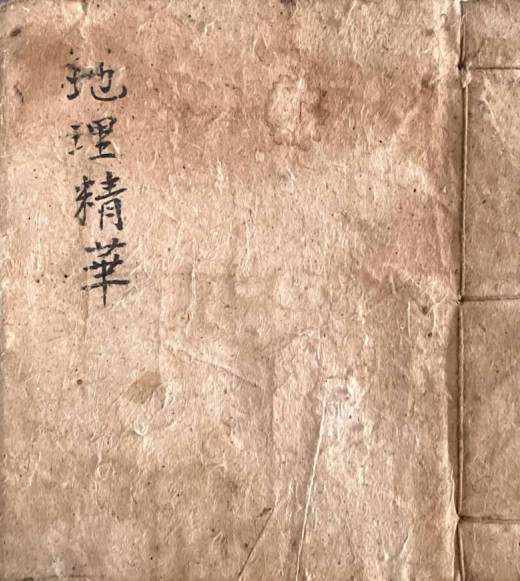 地理精華